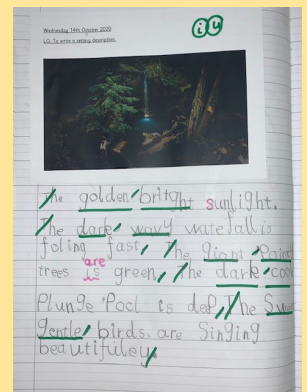 Wednesday 14th October 2020
LO: To write a setting description.
iu
The golden, britght sunlight.
The dark, wavy waterfall is
foling fast, The giant, Point
are
trees is green, The dark, cool
Plunge Pool is deP, The Sweet
gentle, birds. are Singing
beautifuley,